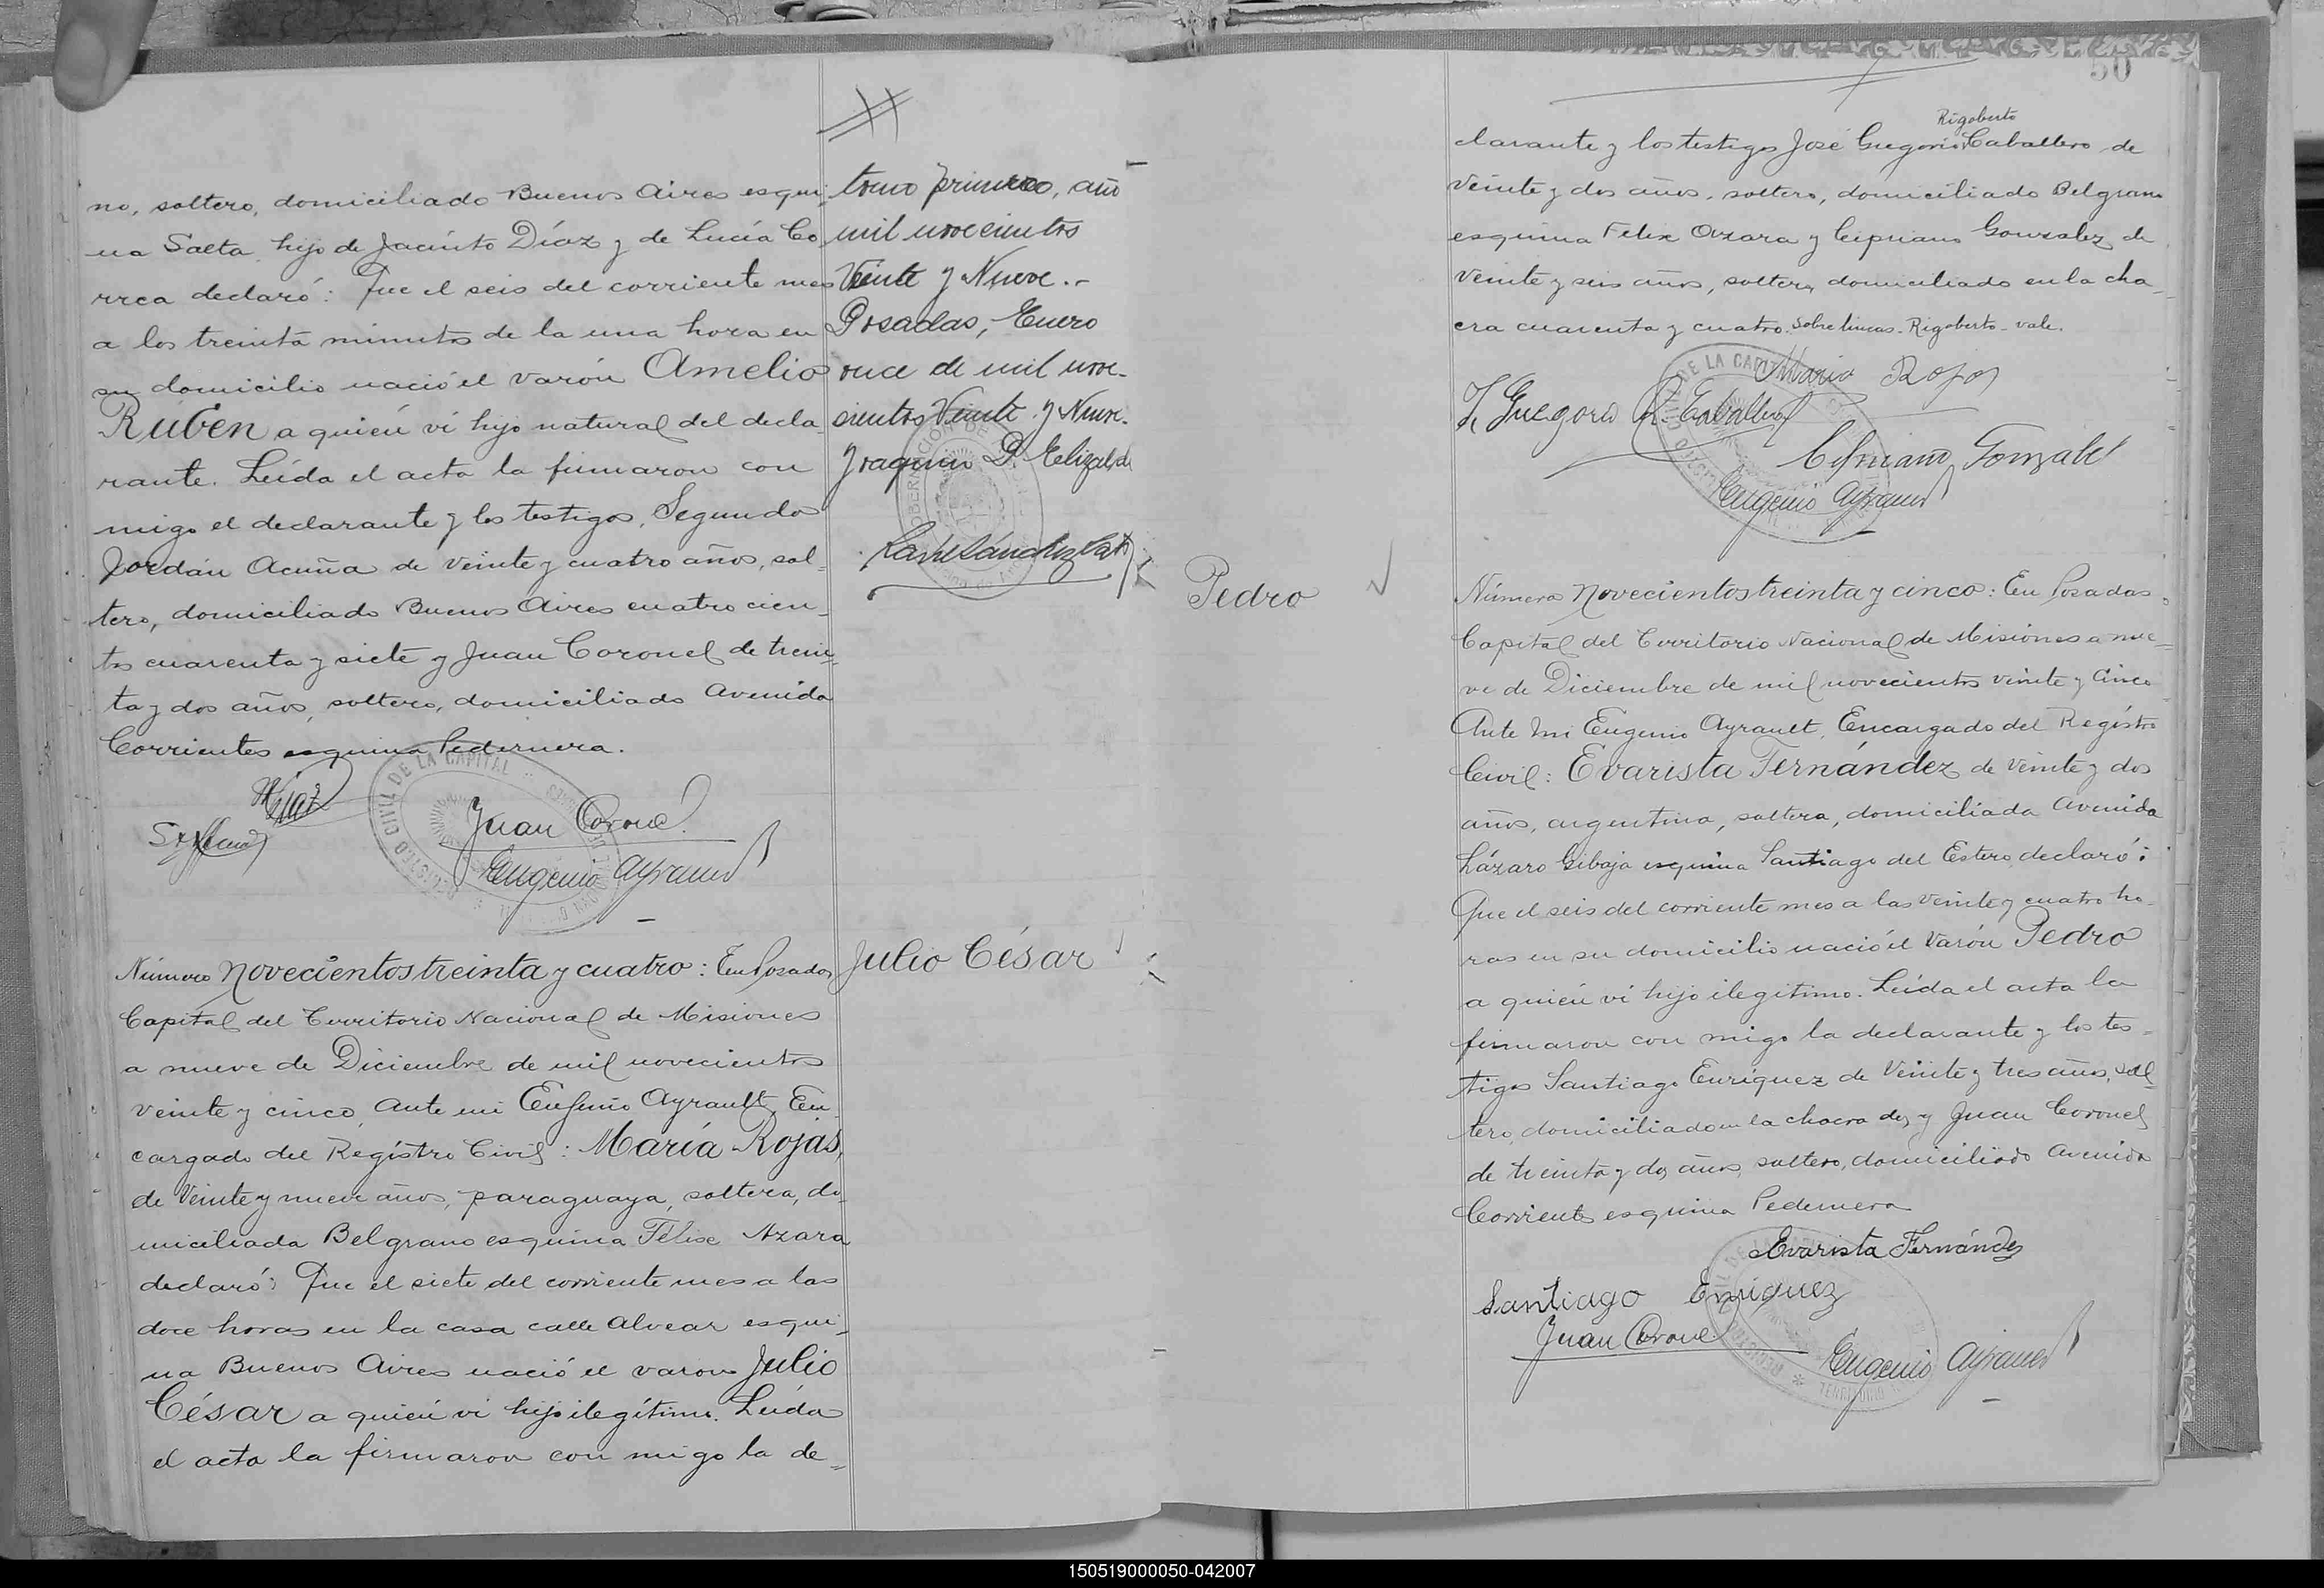 no, soltero, domiciliado Buenos Aires esqui,
na Salta, hijo de Jacinto Díaz y de Lucía Co
rrea declaró: Que el seis del corriente mes
a los treinta minutos de la una hora en
su domicilio nació el varón Amelio
Rubén a quién ví hijo natural del decla
rante. Leída el acta la firmaron con
migo el declarante y los testigos, Segundo
Jordán Acuña de veinte y cuatro años, sol-
tero, domiciliado Buenos Aires cuatro cien-
tos cuarenta y siete y Juan Coronel de trein-
ta y dos años, soltero, domiciliado Avenida
Corrientes esquina Pedernera.
Juan Coronel
Eugenio Ayrault
REGISTRO CIVIL DE LA CAPITAL
tomo primero, año
mil novecientos
Veinte y Nueve.-
Posadas, Enero
once de mil nove-
cientos Veinte y Nueve.
Joaquin D. Elizalde
Número Novecientos treinta y cuatro: En Posadas
Capital del Territorio Nacional de Misiones
a nueve de Diciembre de mil novecientos
veinte y cinco, ante mi Eugenio Ayrault, En
cargado del Registro Civil: María Rojas,
de Veinte y nueve años, paraguaya, soltera, do-
miciliada Belgrano esquina Félix Azara
declaró: Que el siete del corriente mes a las
doce horas en la casa calle Alvear esqui-
na Buenos Aires nació el varon Julio
César a quién ví hijo ilegítimo. Leída
el acta la firmaron con migo la de=
Julio César
50
Rigoberto
clarante y los testigos José Gregorio Caballero de
veinte y dos años, soltero, domiciliado Belgrano
esquina Felix Azara y Cipriano Gonzalez de
veinte y seis años, soltero, domiciliado en la cha-
cra cuarenta y cuatro. Sobre lineas-Rigoberto-vale.
María Rojas
J. Gregorio R. Caballero
Cipriano Gonzalez
Eugenio Ayrault
Pedro
Número Novecientos treinta y cinco: En Posadas,
Capital del Territorio Nacional de Misiones a nue=
ve de Diciembre de mil novecientos veinte y cinco
Ante mi Eugenio Ayrault, Encargado del Registro
Civil: Evarista Fernández de veinte y dos
años, argentina, soltera, domiciliada Avenida
Lázaro Gibaja esquina Santiago del Estero, declaró:
Que el seis del corriente mes a las veinte y cuatro ho-
ras en su domicilio nació el Varón Pedro
a quién ví hijo ilegítimo. Leída el acta la
firmaron con migo la declarante y los tes=
tigos Santiago Enríquez de Veinte y tres años, sol
tero, domiciliado en la chacra dos y Juan Coronel
de treinta y dos años, soltero, domiciliado Avenida
Corrientes esquina Pedernera
Evarista Fernández
Santiago Enriquez
Juan Coronel
Eugenio Ayrault
150519000050-042007